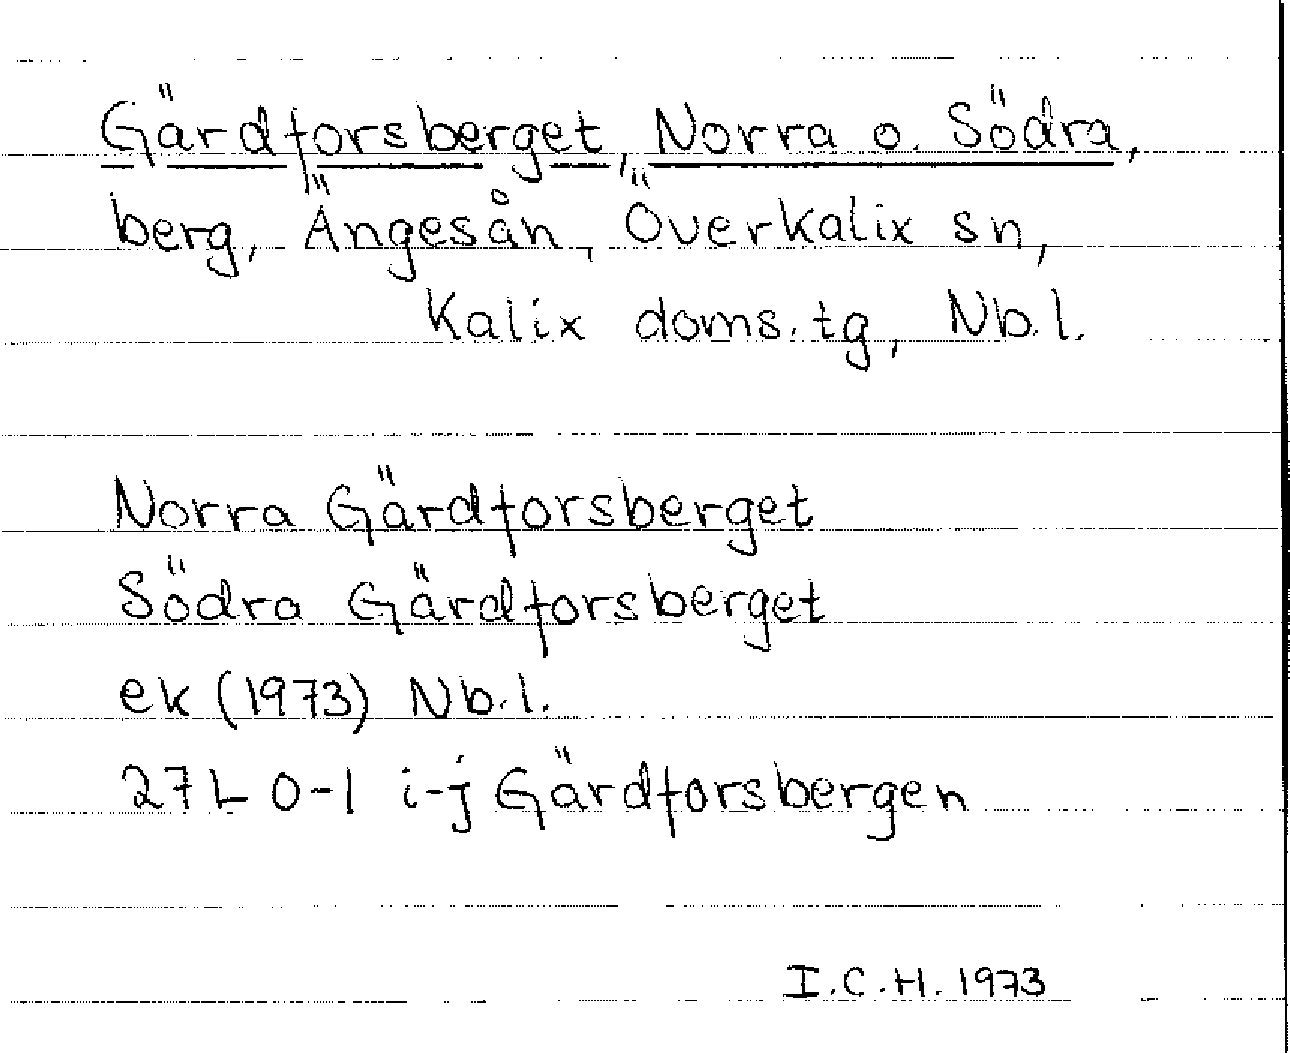 Gärdforsberget, Norra o. Södra,
berg, Ängesån, Överkalix sn,
Kalix doms.tg, Nb.l.
Norra Gärdforsberget
Södra Gärdforsberget
ek (1973) Nb.l.
27L 0-1 i-j Gärdforsbergen
I.C.H. 1973